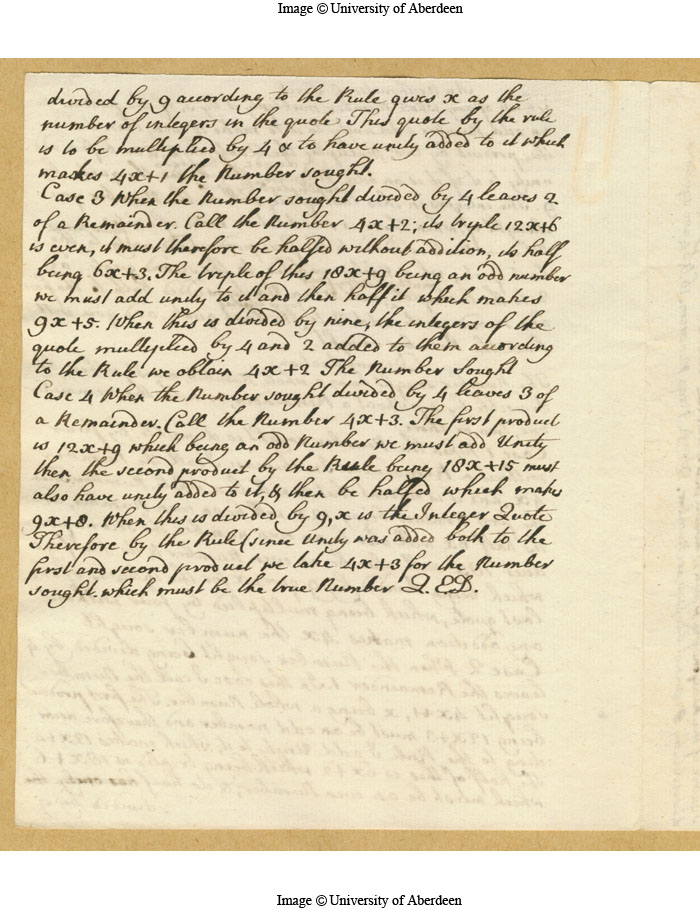 Image © University of Aberdeen
divided by 9 according to the Rule gives x as the
number of integers in the quote This quote by the rule
is to be multiplied by 4 & to have unity added to it which
makes 4x+1 the Number sought.
Case 3 When the Number sought divided by 4 leaves 2
of a Remainder. Call the Number 4x+2; its triple 12x+6
is even, it must therefore be halfed without addition, its half
being 6x+3. The triple of this 18x+9 being an odd number
we must add unity to it and then half it which makes
9x+5. When this is divided by nine, the integers of the
quote multiplied by 4 and 2 added to them according
to the Rule we obtain 4x+2 The Number Sought
Case 4 When the Number sought divided by 4 leaves 3 of
a Remainder. Call the Number 4x+3. The first product
is 12x+9 which being an odd Number we must add Unity
then the second product by the Rule being 18x+15 must
also have unity added to it, & then be halfed which makes
9x+8. When this is divided by 9, x is the Integer Quote
Therefore by the Rule (since Unity was added both to the
first and second product we take 4x+3 for the Number
sought. which must be the true Number Q. E.D.
Image © University of Aberdeen